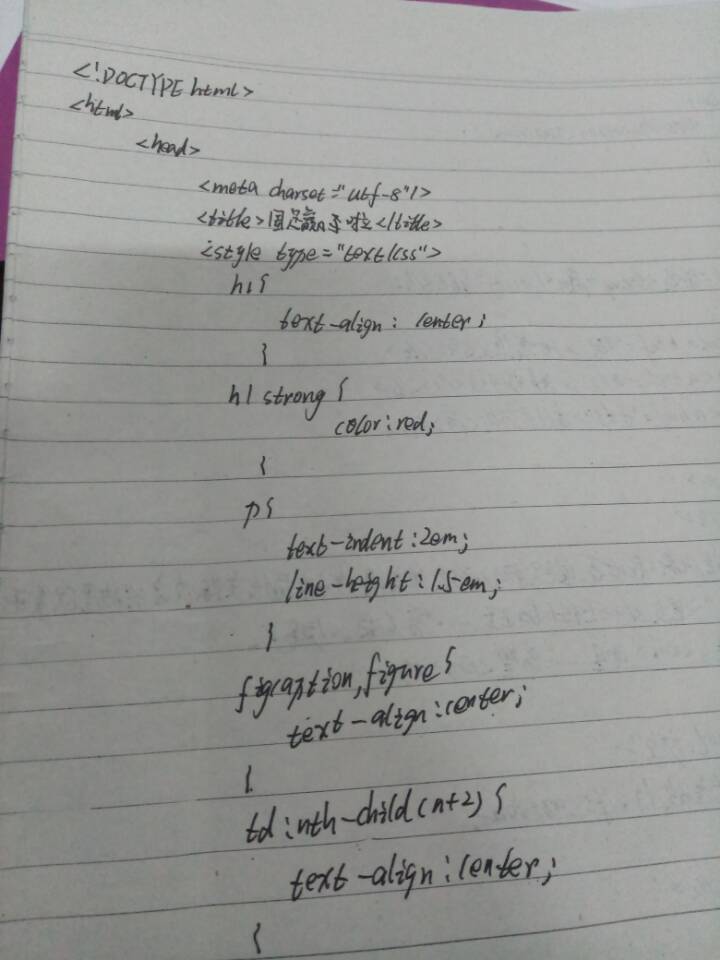 <!DOCTYPE html>
<html>
<head>
<meta charset="utf-8"/>
<title>国足赢了啦</title>
<style type="text/css">
h1{
text-align: center;
}
h1 strong {
color:red;
}
p{
text-indent:2em;
line-height:1.5em;
}
figcaption,figure{
text-align:center;
}
td:nth-child(n+2) {
text-align:center;
}